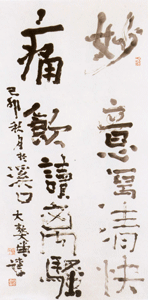 妙意寫清快
痛飲讀離騷
己卯秋月於溪口